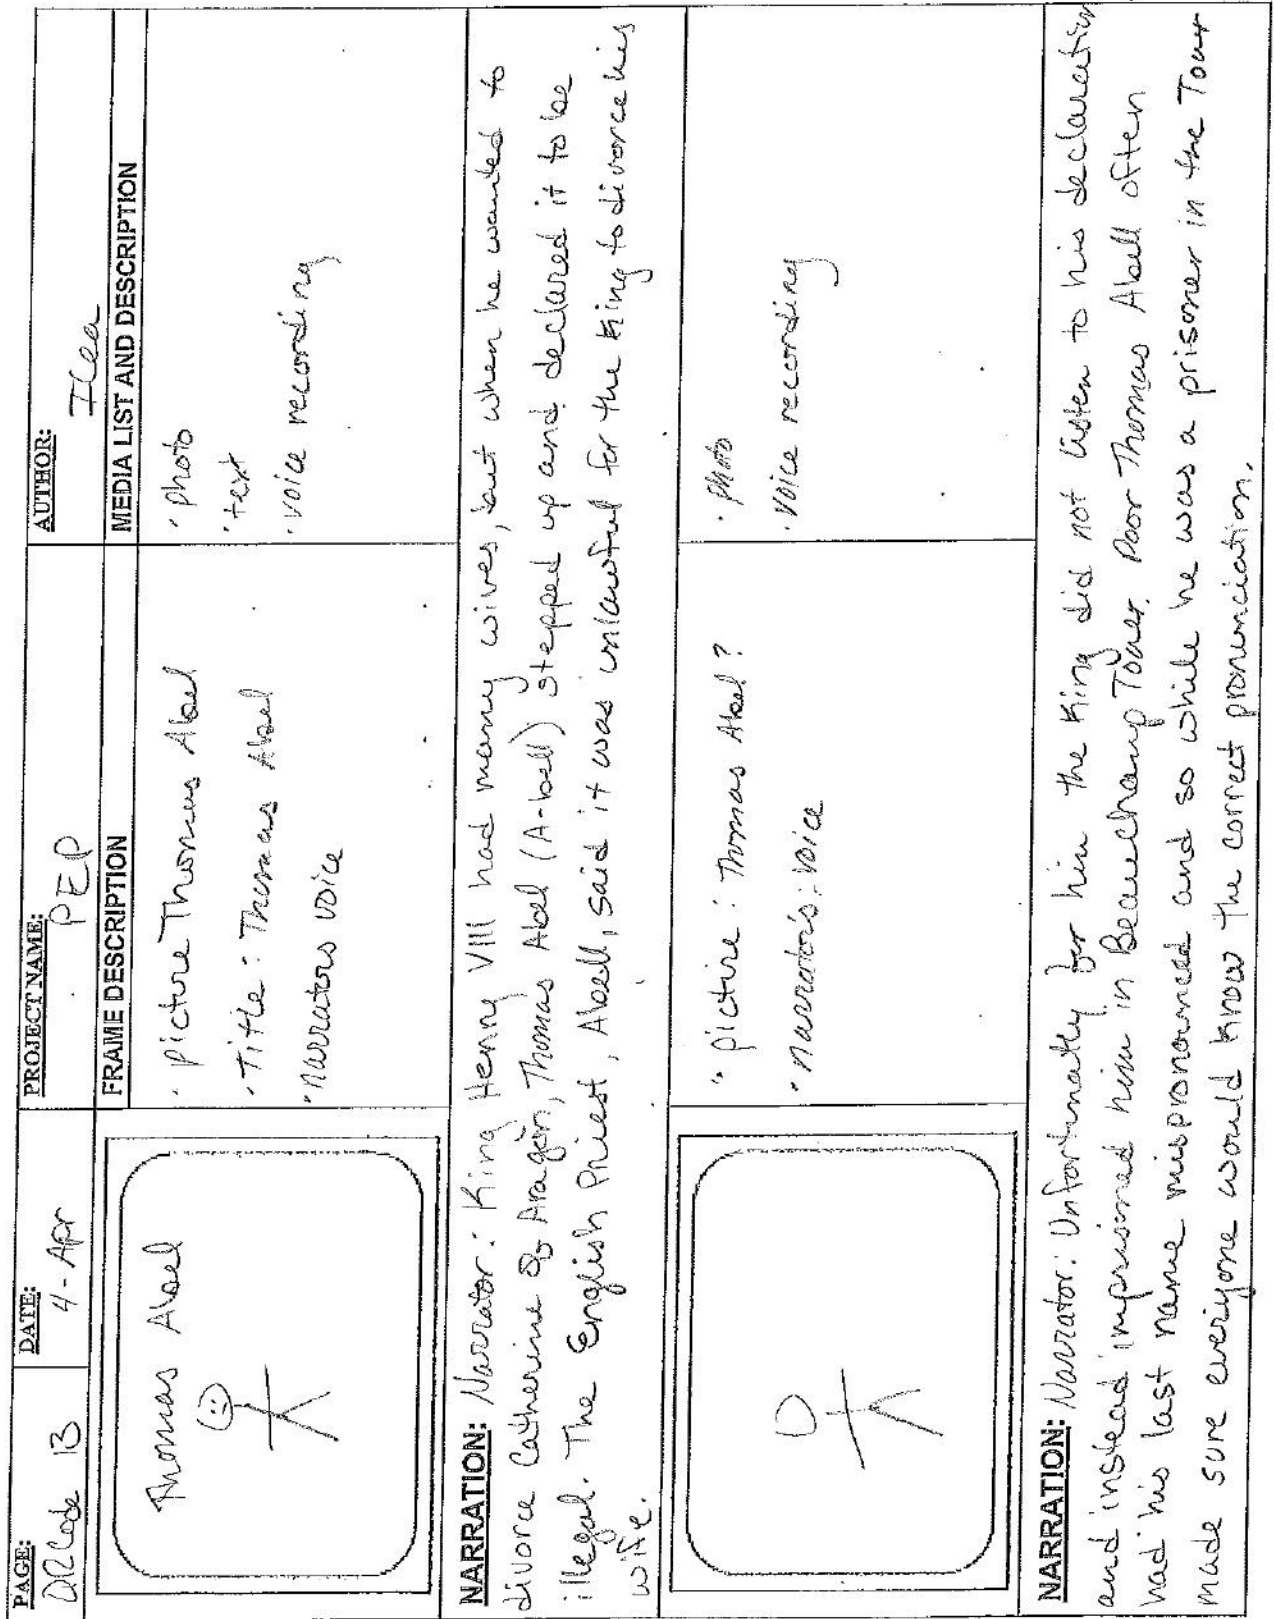 PAGE: QR Code 13
DATE: 4-Apr
PROJECT NAME: PEP
AUTHOR: Ilea
FRAME DESCRIPTION
MEDIA LIST AND DESCRIPTION
Thomas Abel
· picture Thomas Abel
· Title: Thomas Abel
· narrators voice
· photo
· text
· voice recording
NARRATION: Narrator: King Henry VIII had many wives, but when he wanted to
divorce Catherine of Aragón, Thomas Abel (A-bell) stepped up and declared it to be
illegal. The English Priest, Abell, said it was unlawful for the King to divorce his
wife.
· picture: Thomas Abel?
· narrator's: voice
· photo
· voice recording
NARRATION: Narrator: Unfortunatly for him the King did not listen to his declaration
and instead imprisoned him in Beauchamp Tower. Poor Thomas Abell often
had his last name mispronounced and so while he was a prisoner in the Tower
made sure everyone would know the correct pronunciation.